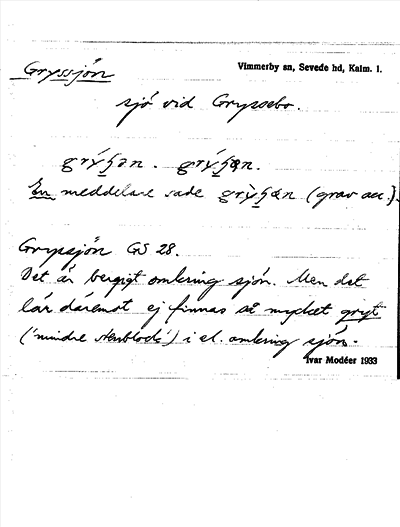 Gryssjön
Vimmerby sn, Sevede hd, Kalm. l.
sjö vid Gryssebo.
En meddelare sade (grav acc.).
Grypsjön GS 28.
Det är bergigt omkring sjön. Men det
lär däremot ej finnas så mycket gryt
('mindre stenblock') i el. omkring sjön.
Ivar Modéer 1933